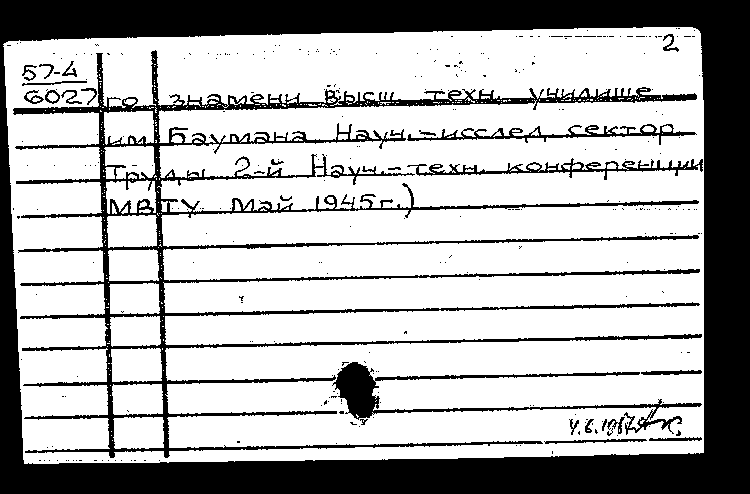 2
57-4
6027 го знамени высш. техн. училище
им. Баумана Науч.-исслед. сектор.
Труды 2-й Науч.-техн. конференции
МВТУ. Май 1945г.)